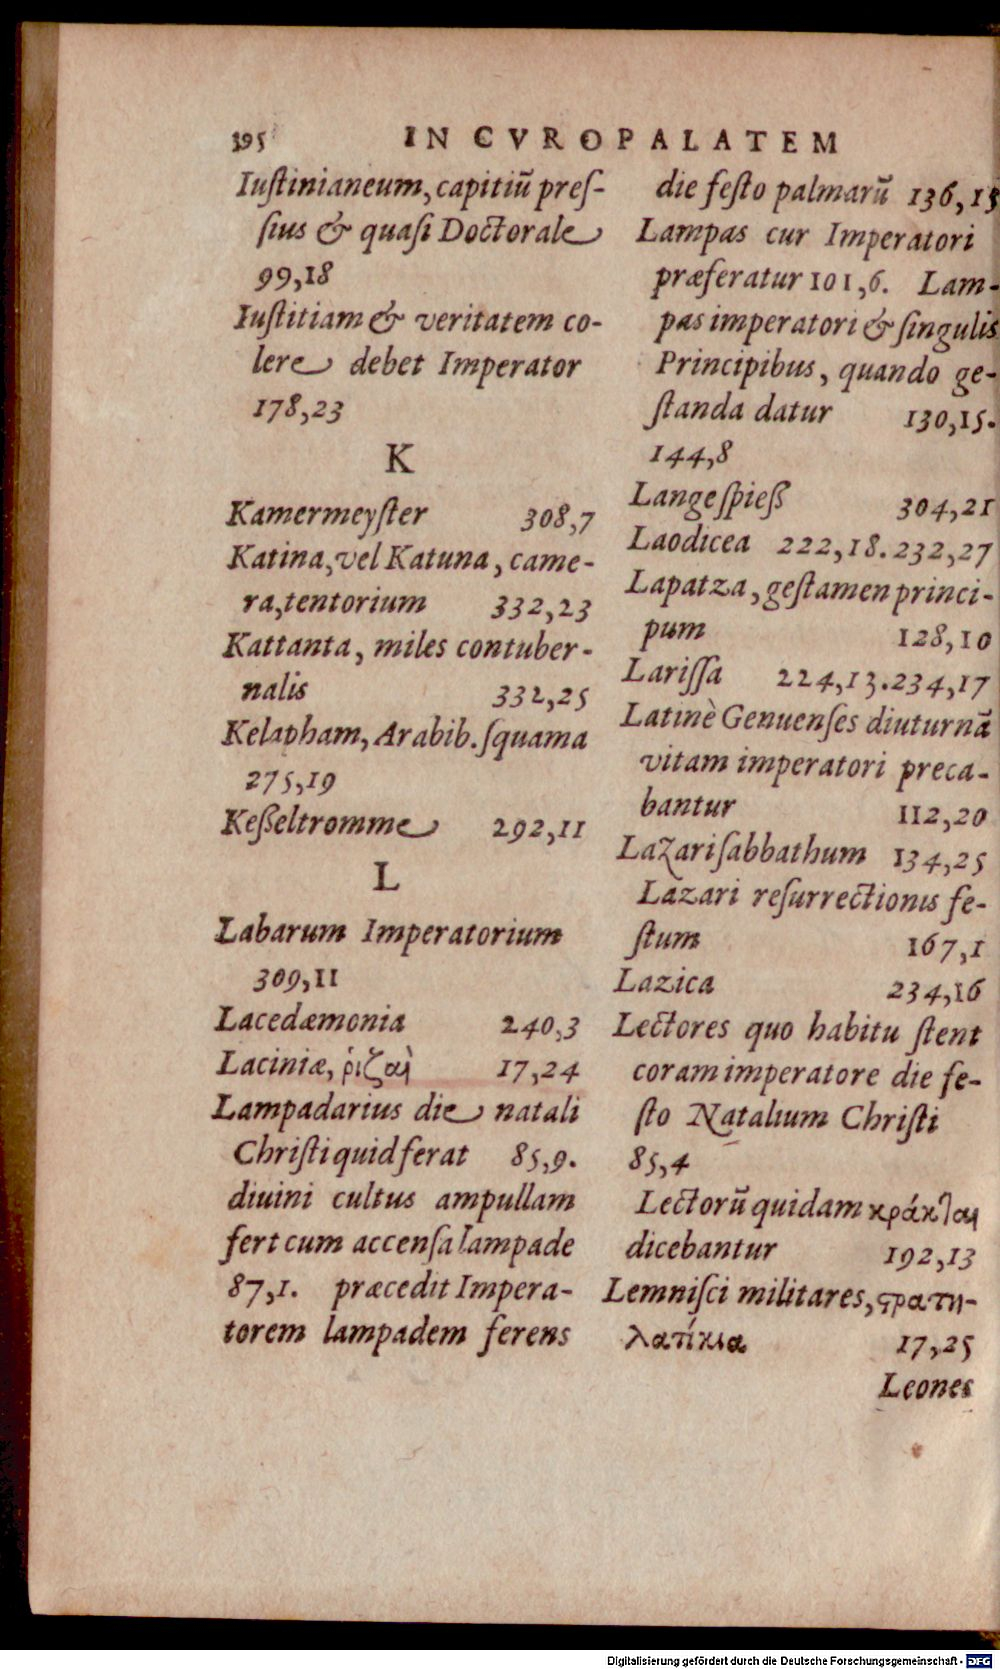 395
IN CVROPALATEM
Iuſtinianeum, capitiũ preſ-
ſius & quaſi Doctorale
99,18
Iuſtitiam & veritatem co-
lere debet Imperator
178,23
K
Kamermeyſter 308,7
Katina, vel Katuna, came-
ra, tentorium 332,23
Kattanta, miles contuber-
nalis 332,25
Kelapham, Arabib. ſquama
275,19
Keßeltromme 292,11
L
Labarum Imperatorium
309,11
Lacedæmonia 240,3
Laciniæ, ῥιζαὶ 17,24
Lampadarius die natali
Chriſti quid ferat 85,9.
diuini cultus ampullam
fert cum accenſa lampade
87,1. præcedit Impera-
torem lampadem ferens
die feſto palmarũ 136,15
Lampas cur Imperatori
præferatur 101,6. Lam-
pas imperatori & ſingulis
Principibus, quando ge-
ſtanda datur 130,15.
144,8
Langeſpieß 304,21
Laodicea 222,18. 232,27
Lapatza, geſtamen princi-
pum 128,10
Lariſſa 224,13. 234,17
Latinè Genuenſes diuturnã
vitam imperatori preca-
bantur 112,20
Lazari ſabbathum 134,25
Lazari reſurrectionis fe-
ſtum 167,1
Lazica 234,16
Lectores quo habitu ſtent
coram imperatore die fe-
ſto Natalium Chriſti
85,4
Lectorũ quidam κράκται
dicebantur 192,13
Lemniſci militares, ϛρατη-
λατίκια 17,25
Leones
Digitalisierung gefördert durch die Deutsche Forschungsgemeinschaft - DFG